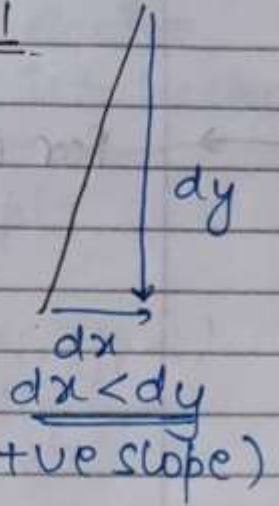 dy
dx
dx < dy
+ve slope)